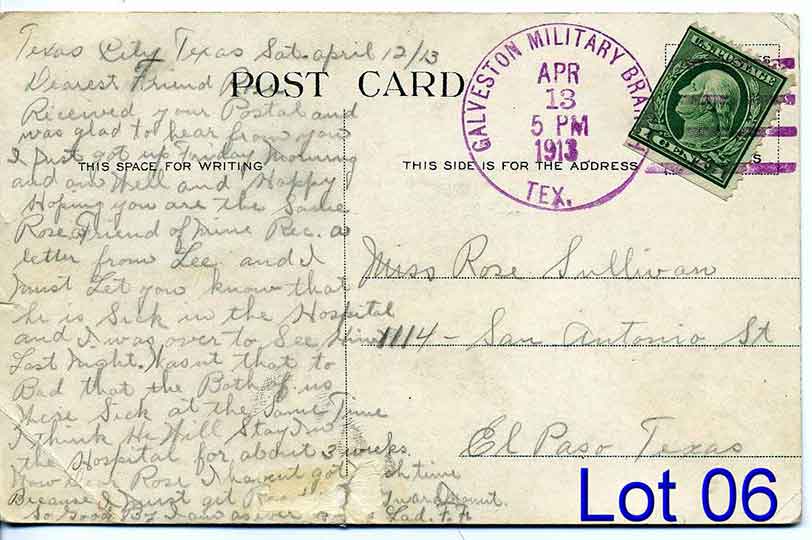 Texas City Texas Sat. april 12/13
Dearest Friend
Received your Postal and
was glad to hear from you
I Just got up Friday Morning
and am Well and Happy
Hoping you are the Same
Rose a Friend of mine Rec. a
letter from Lee and I
must Let you know that
he is Sick in the Hospital
and I was over to See Him
Last Night. Wasnt that to
Bad that the Both of us
Were Sick at the Same Time
I think He Will Stay in
the Hospital for about 3 weeks.
Now Dear Rose I havent got time
Because I Must get
So Good By I am as ever Lad.
POST CARD
THIS SPACE FOR WRITING
THIS SIDE IS FOR THE ADDRESS
GALVESTON MILITARY
APR
13
5 PM
1913
TEX.
U.S. POSTAGE
1 CENT
Miss Rose Sullivan
1114 - San Antonio St
El Paso Texas
Lot 06